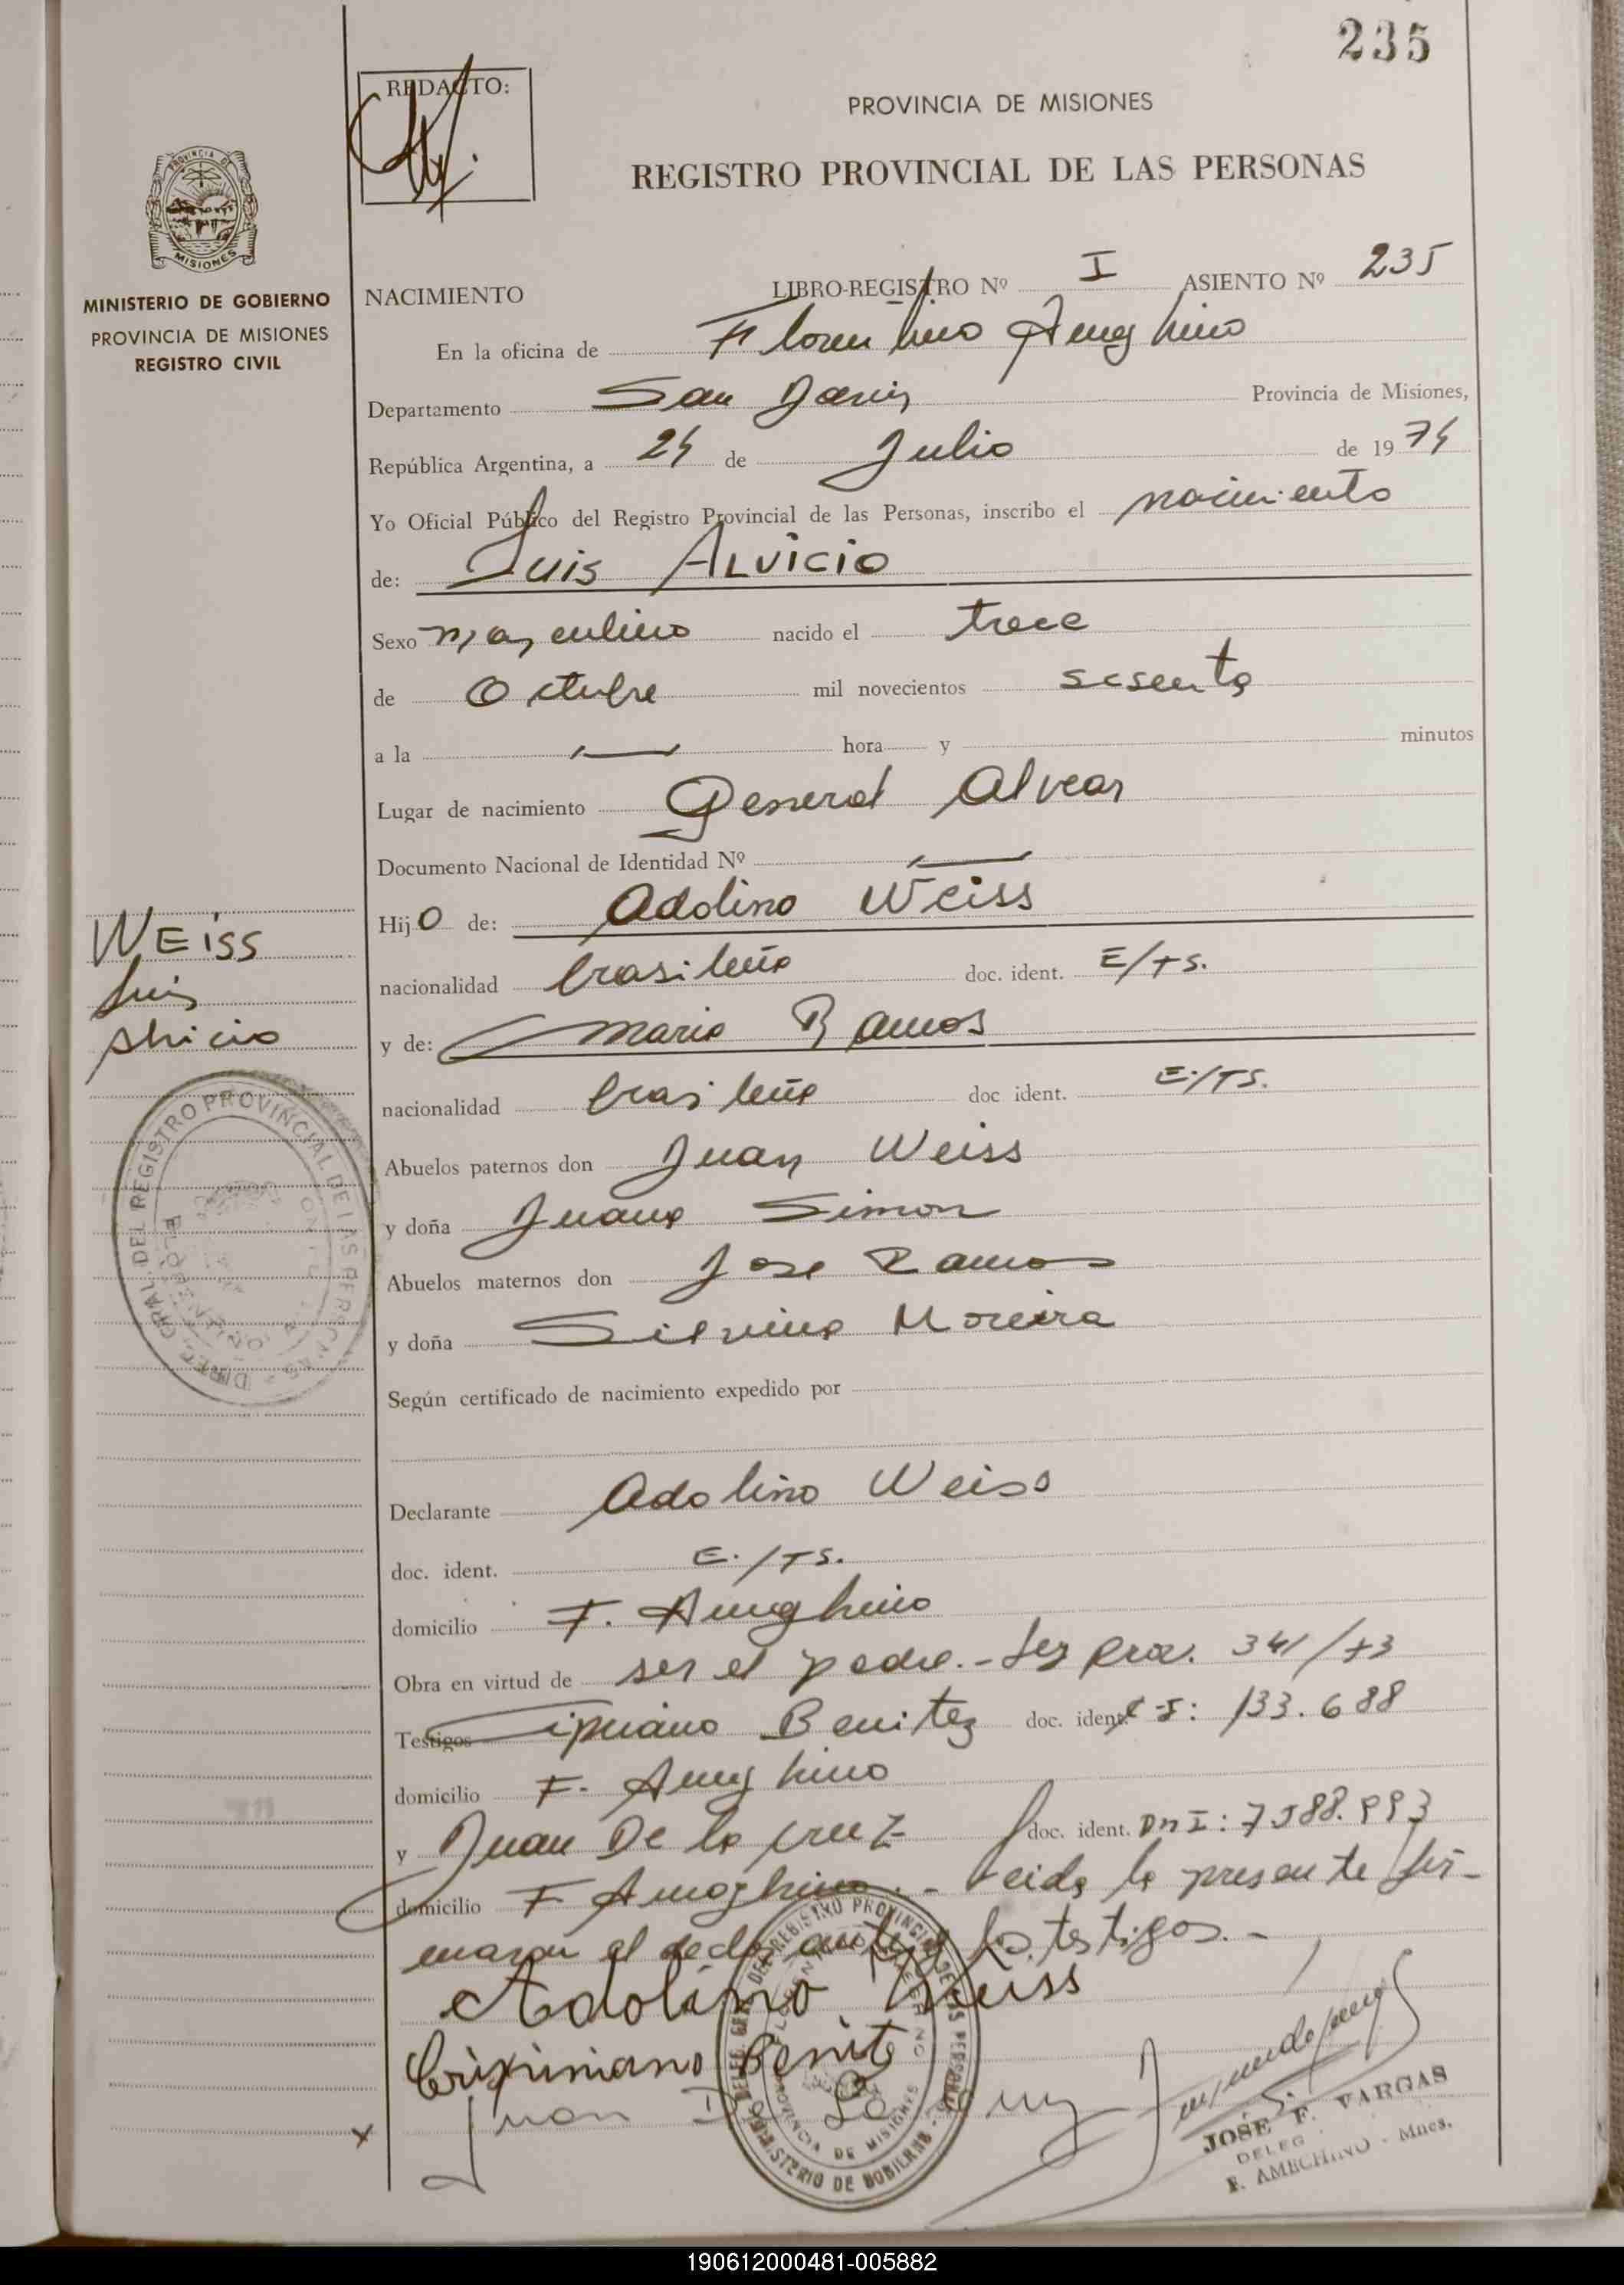 235
REDACTO:
PROVINCIA DE MISIONES
REGISTRO PROVINCIAL DE LAS PERSONAS
PROVINCIA DE
MISIONES
MINISTERIO DE GOBIERNO
PROVINCIA DE MISIONES
REGISTRO CIVIL
NACIMIENTO LIBRO-REGISTRO Nº I ASIENTO Nº 235
En la oficina de Florentino Ameghino
Departamento San Javier Provincia de Misiones,
República Argentina, a 24 de Julio de 1974
Yo Oficial Público del Registro Provincial de las Personas, inscribo el nacimiento
de: Luis ALViCiO
Sexo masculino nacido el trece
de Octubre mil novecientos sesenta
a la — hora y minutos
Lugar de nacimiento General Alvear
Documento Nacional de Identidad Nº —
Hijo de: Adolino Weiss
nacionalidad brasileño doc. ident. E/TS.
y de: Maria Ramos
nacionalidad brasileña doc ident. E./TS.
Abuelos paternos don Juan Weiss
y doña Juana Simon
Abuelos maternos don Jose Ramos
y doña Silvina Moreira
Según certificado de nacimiento expedido por
Declarante Adolino Weiss
doc. ident. E./TS.
domicilio F. Ameghino
Obra en virtud de ser el padre.- Ley prov. 341/73
Testigos Cipriano Benitez doc. ident. 133.688
domicilio F. Ameghino
y Juan De la cruz doc. ident. DNI:
domicilio F Ameghino.- Leida la presente fir-
maron el declarante y los testigos.-
Adolino Weiss
Benite
Juan De La Cruz
JOSÉ F. VARGAS
DELEG
F. AMEGHINO - Mnes.
WEiSS
Luis
Alvicio
DIREC. GRAL. DEL REGISTRO PROVINCIAL DE LAS PERSONAS
DELEG. GRAL. DEL REGISTRO PROVINCIAL DE LAS PERSONAS
PROVINCIA DE MISIONES
MINISTERIO DE GOBIERNO
190612000481-005882